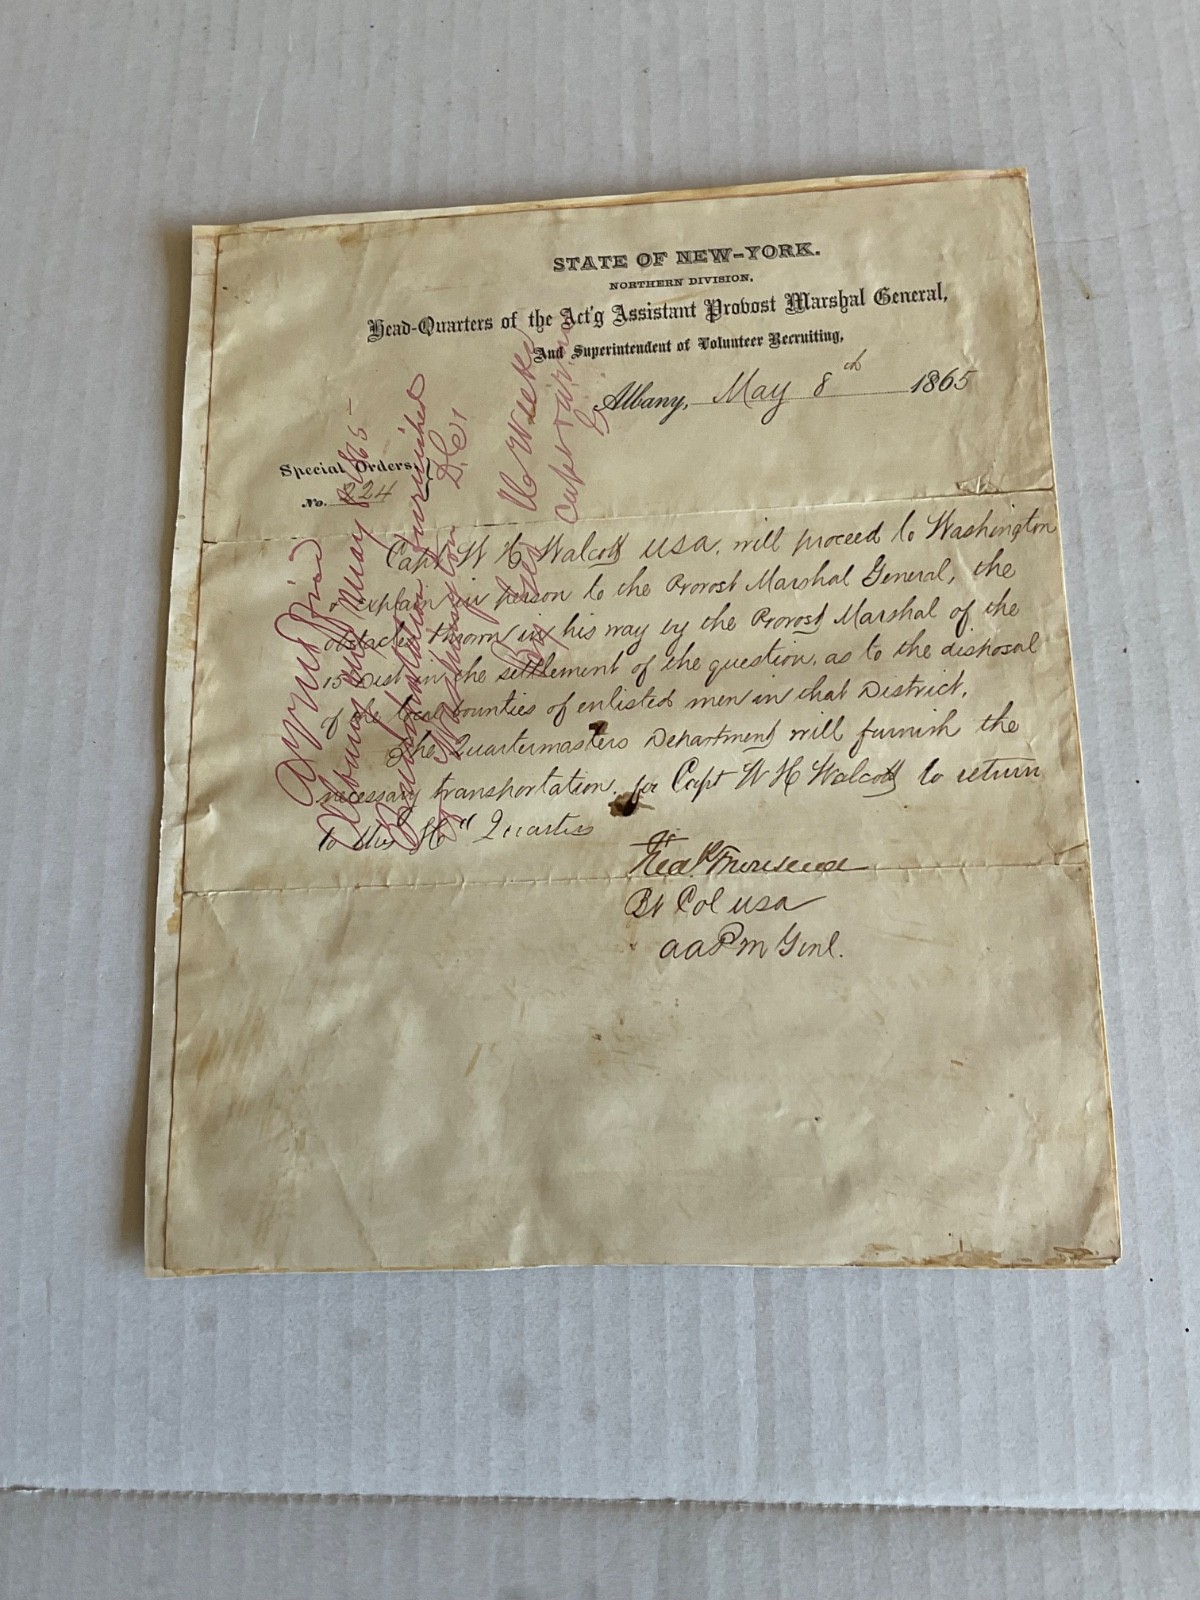 STATE OF NEW-YORK.
NORTHERN DIVISION,
Head-Quarters of the Act'g Assistant Provost Marshal General,
And Superintendent of Volunteer Recruiting,
Albany, May 8th 1865
Special Orders,
No. 224
Capt W H Walcott USA. will proceed to Washington
explain in person to the Provost Marshal General, the
obstacles thrown in his way by the Provost Marshal of the
15 Dist in the settlement of the question, as to the disposal
of the local bounties of enlisted men in that District.
The Quartermasters Department will furnish the
necessary transportation. for Capt W H Walcott to return
to this Hd Quarters
Fredk Townsend
Bt Col USA
AAPM Genl.
Albany May 8 1865
Transportation furnished
to Washington D.C.